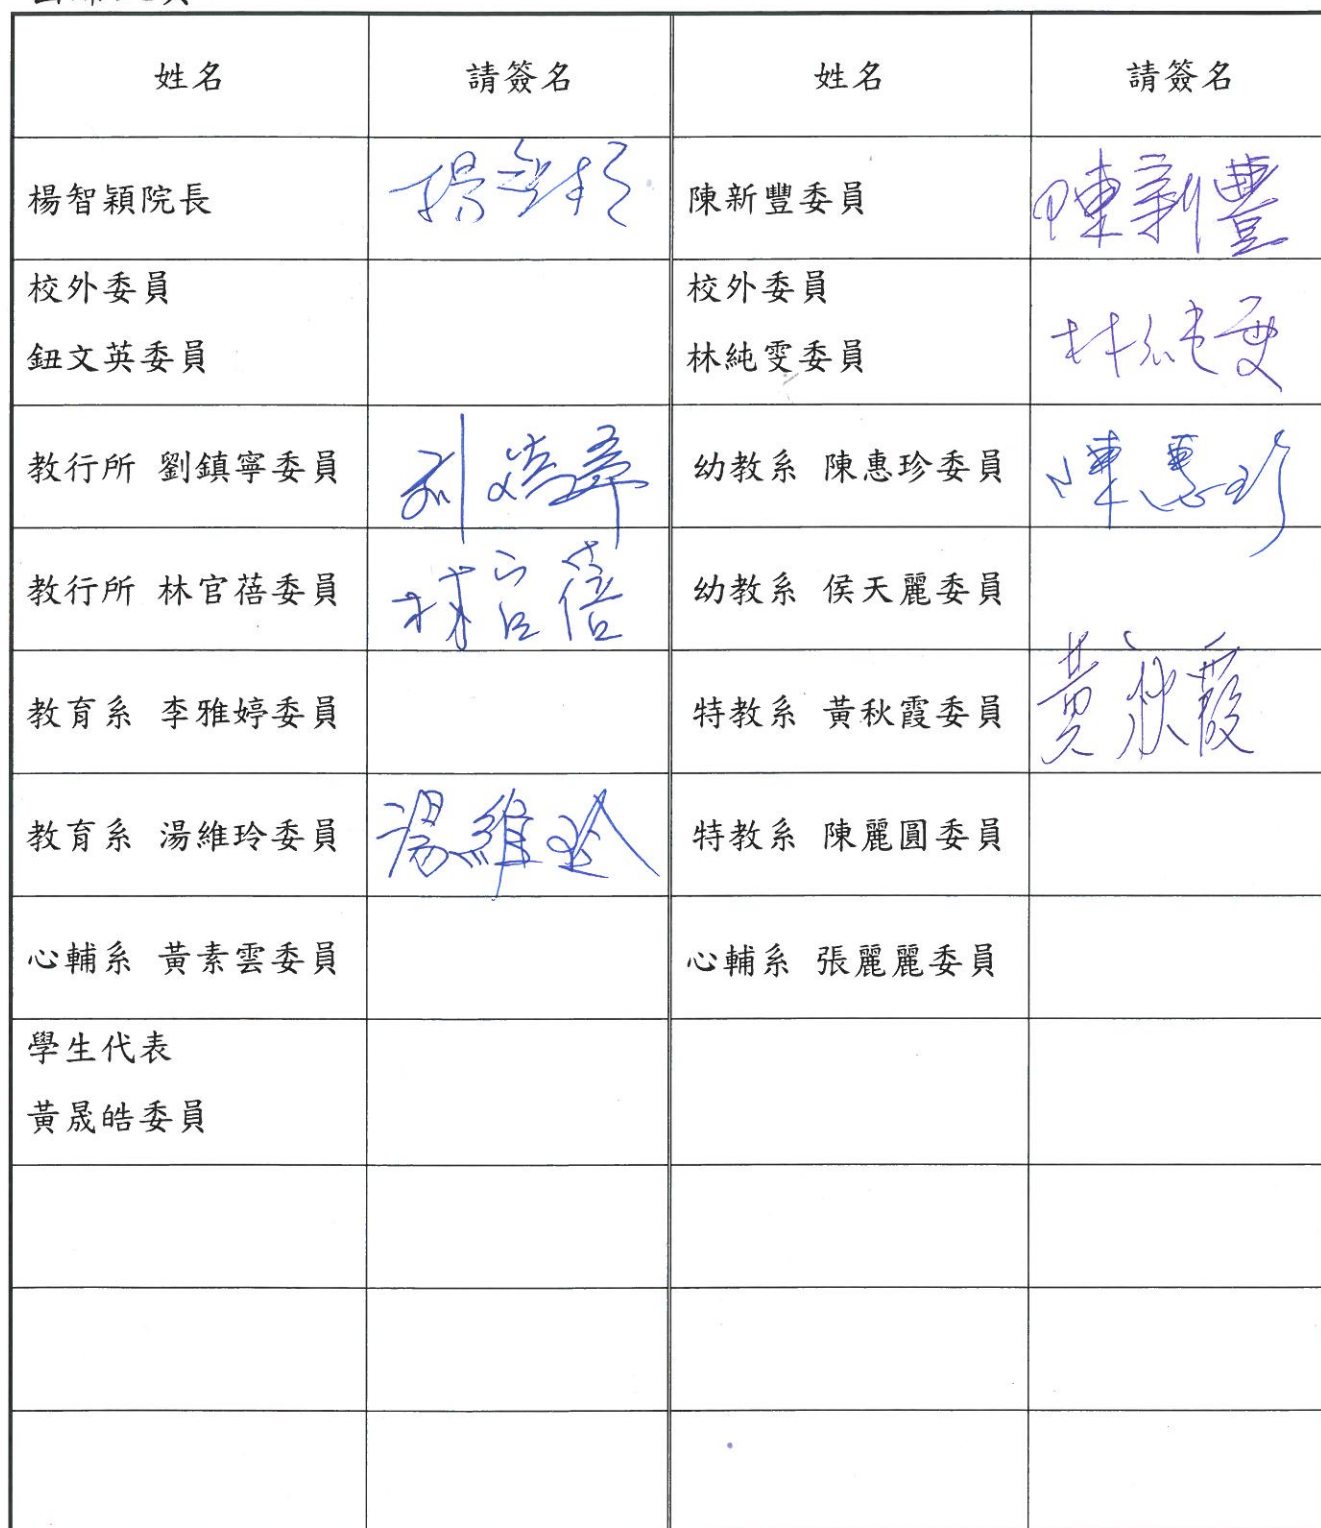 姓名 請簽名 姓名 請簽名
楊智穎院長 楊智穎 陳新豐委員 陳新豐
校外委員 校外委員
鈕文英委員 林純雯委員 林純雯
教行所 劉鎮寧委員 刘鎮寧 幼教系 陳惠珍委員 陳惠珍
教行所 林官蓓委員 林官蓓 幼教系 侯天麗委員
教育系 李雅婷委員 特教系 黃秋霞委員 黃秋霞
教育系 湯維玲委員 湯維玲 特教系 陳麗圓委員
心輔系 黃素雲委員 心輔系 張麗麗委員
學生代表
黃晟皓委員